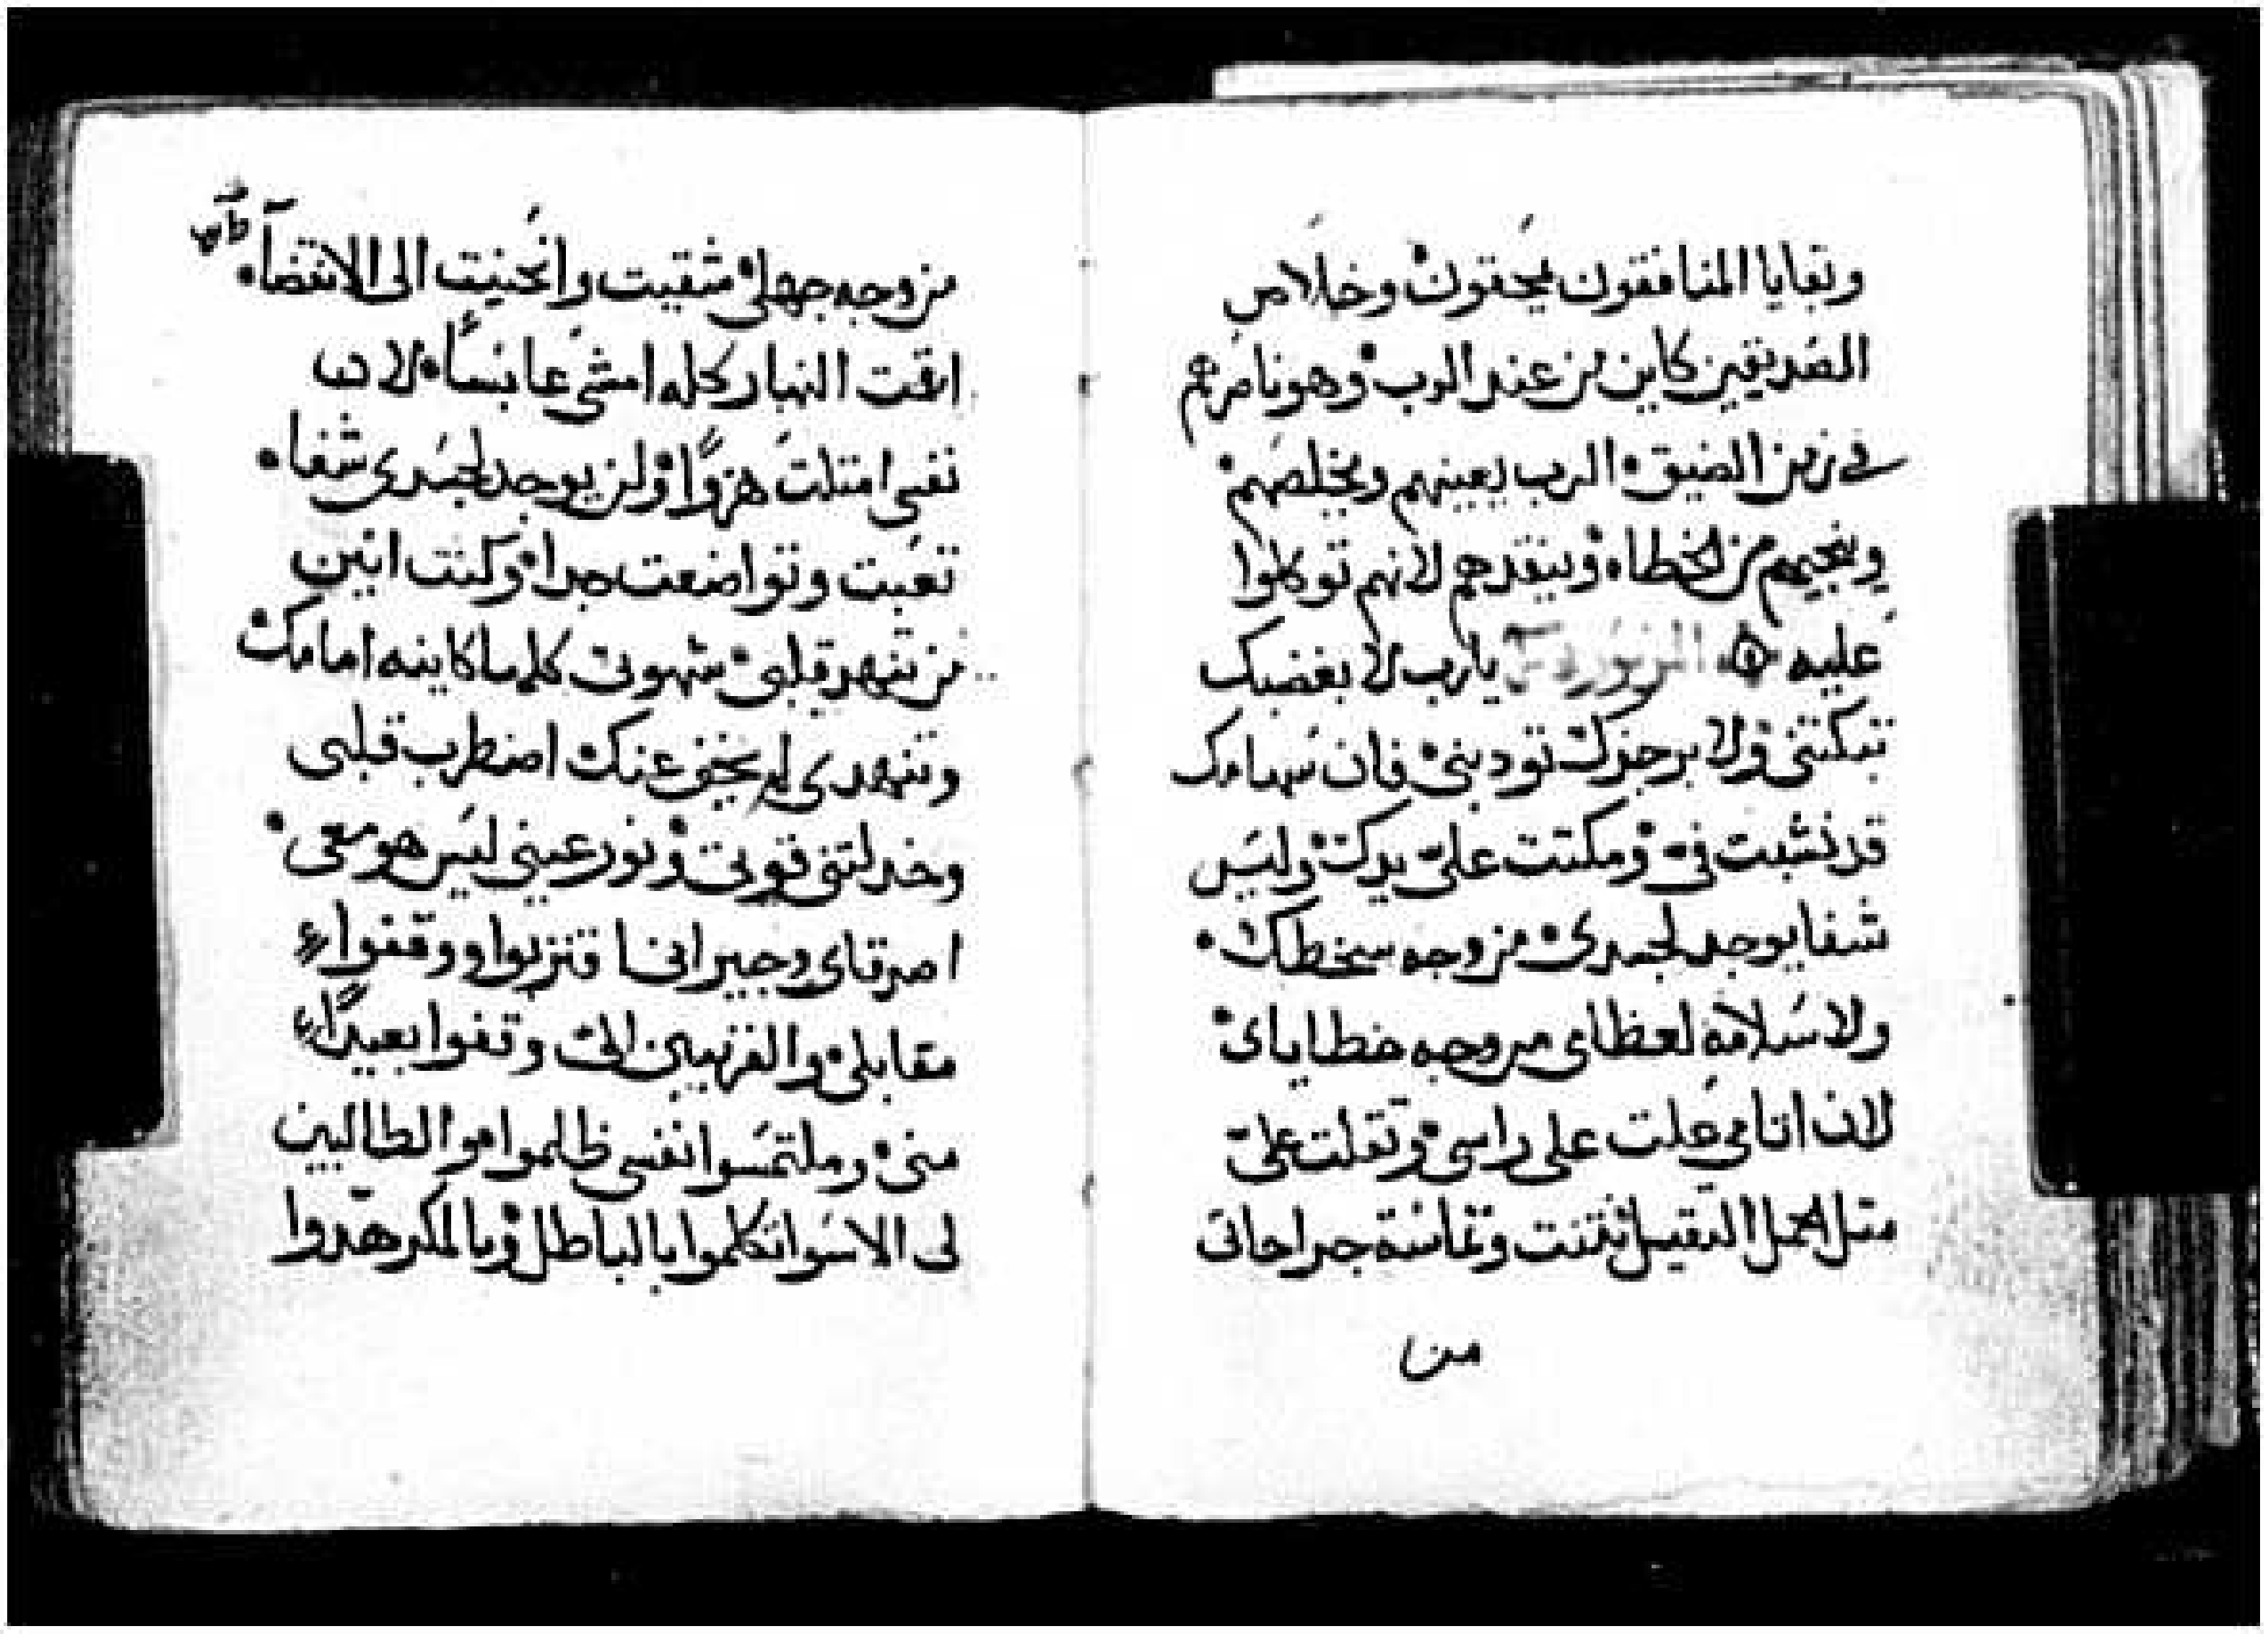 وبقايا المنافقون يمحقون وخلاص
الصديقين كاين من عند الرب وهو ناصرهم
في زمن الضيق الرب يعينهم ويخلصهم
وينجيهم من الخطاه وينقدهم لانهم توكلوا
عليه المزمور يارب لا بغضبك
تبكتني ولا برجزك تودبني فان سهامك
قد نشبت في ومكنت علي يدك وليس
شفا يوجد لجسدي من وجه سخطك
ولا سلامه لعظامي من وجه خطاياي
لان اتامي علت على راسي وتقلت علي
متل الحمل التقيل نتنت وقاست جراحاتي
من
من وجه جهلي شقيت وانحنيت الى الانقضآ
اقمت النهار كله امشي عابسًا لان
نفسي امتلت هزوًا ولن يوجد لجسدي شفا
تعبت وتواضعت جدا وكنت انين
من تنهد قلبي شهوتي كلها كاينه امامك
وتنهدي لم يخفى عنك اضطرب قلبي
وخدلتني قوتي ونور عيني ليس هو معي
اصدقاي وجيراني اقتربوا ووقفوا
مقابلي والقريبين الي وقفوا بعيدًا
مني وملتمسوا نفسي ظلموا والطالبين
لي الاسوا تكلموا بالباطل وبالمكر هدّوا